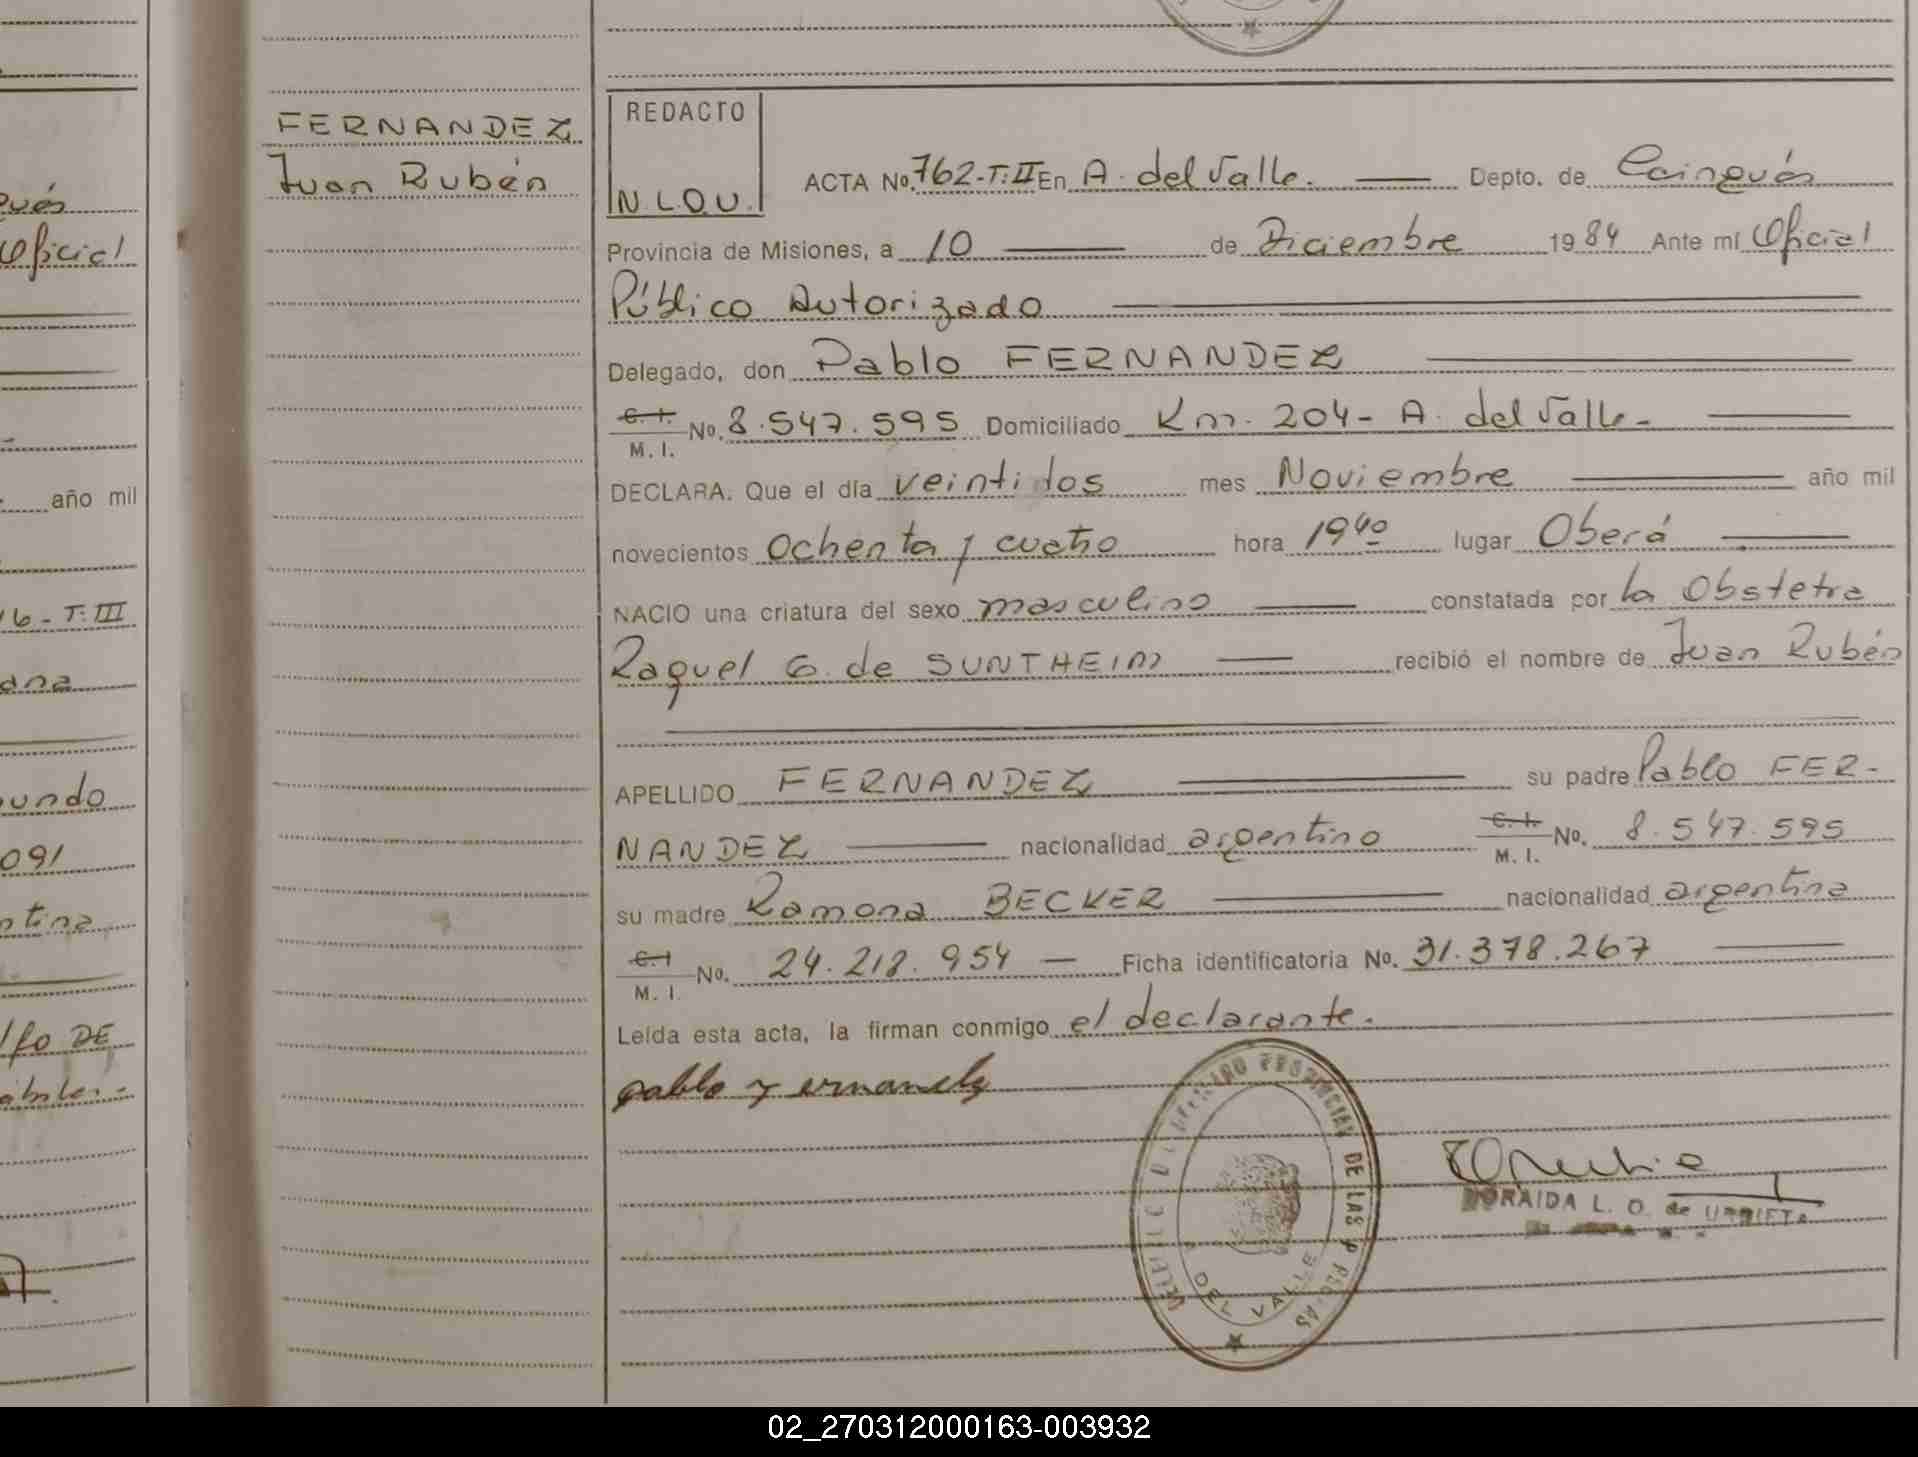 qués
Oficial
año mil
16 - T: III
ana
undo
091
ntina
lfo DE
FERNANDEZ
Juan Rubén
REDACTO
N.L.O.U.
ACTA No. 762-T:II En A. del Valle. Depto. de Cainguás
Provincia de Misiones, a 10 de Diciembre 1984 Ante mí Oficial
Público Autorizado
Delegado, don Pablo FERNANDEZ
C. I.
M. I. No. 8.547.595 Domiciliado Km. 204- A. del Valle-
DECLARA: Que el día veintidos mes Noviembre año mil
novecientos Ochenta y cuatro hora 19⁴⁰ lugar Oberá
NACIO una criatura del sexo masculino constatada por la Obstetra
Raquel G. de SUNTHEIM recibió el nombre de Juan Rubén
APELLIDO FERNANDEZ su padre Pablo FER-
NANDEZ nacionalidad argentino C. I. M. I. No. 8.547.595
su madre Ramona BECKER nacionalidad argentina
C. I
M. I. No. 24.212.954 — Ficha identificatoria No. 31.378.267
Leída esta acta, la firman conmigo el declarante.
pablo fernandez
PROVINCIAL DE LAS P
DEL VALLE
DORAIDA L. O. de URRIETA
02_270312000163-003932